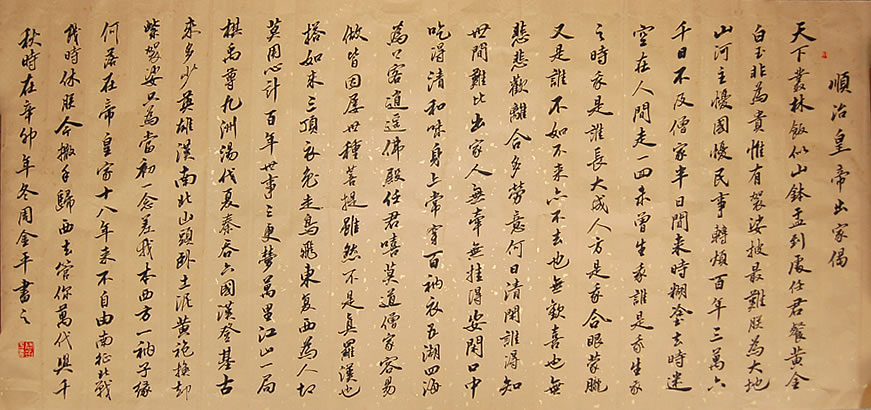 順治皇帝出家偈
天下叢林飯似山鉢盂到處任君餐黃金
白玉非為貴惟有袈裟披最難朕為大地
山河主憂國憂民事轉煩百年三萬六
千日不及僧家半日閒來時糊塗去時迷
空在人間走一回未曾生我誰是我生我
之時我是誰長大成人方是我合眼朦朧
又是誰不如不來亦不去也無歡喜也無
悲悲歡離合多勞意何日清閑誰得知
世間難比出家人無牽無掛得安閑口中
吃得清和味身上常穿百衲衣五湖四海
為上客逍遙佛殿任君嘻莫道僧家容易
做皆因屢世種菩提雖然不是真羅漢也
搭如來三頂衣兔走鳥飛東復西為人切
莫用心計百年世事三更夢萬里江山一局
棋禹尊九洲湯伐夏秦吞六國漢登基古
來多少英雄漢南北山頭卧土泥黃袍換却
紫袈裟只為當初一念差我本西方一衲子緣
何落在帝皇家十八年來不自由南征北戰
幾時休朕今撒手歸西去管你萬代與千
秋時在辛卯年冬周金平書之